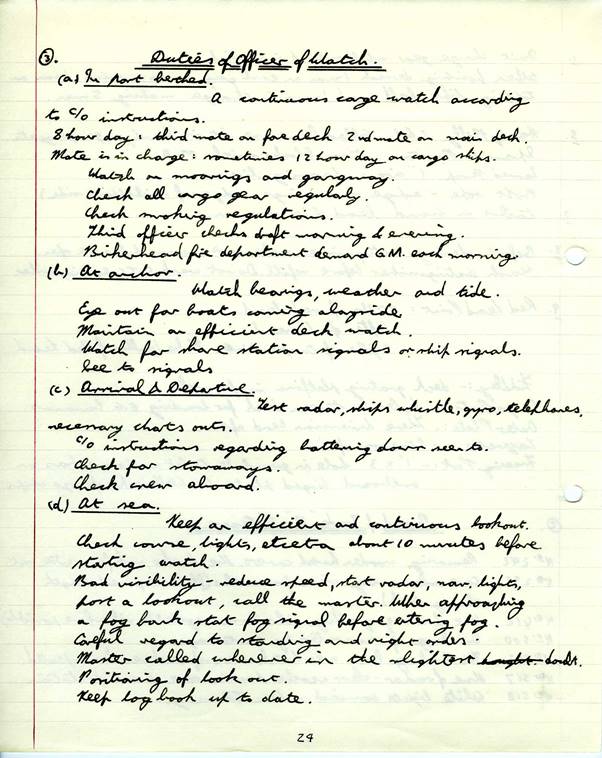 ③. Duties of Officer of Watch.
(a) In port berthed.
A continuous cargo watch according
to C/O instructions.
8 hour day: third mate on fore deck 2nd mate on main deck.
Mate is in charge: sometimes 12 hour day on cargo ships.
Watch on moorings and gangway.
Check all cargo gear regularly.
Check smoking regulations.
Third officer checks draft morning & evening.
Birkenhead fire department demand G.M. each morning.
(b) At anchor.
Watch bearings, weather and tide.
Eye out for boats coming alongside
Maintain an efficient deck watch.
Watch for shore station signals or ship signals.
See to signals
(c) Arrival & Departure.
Test radar, ships whistle, gyro, telephones,
necessary charts outs.
C/O instructions regarding battening down seen to.
Check for stowaways.
Check crew aboard.
(d) At sea.
Keep an efficient and continuous lookout.
Check course, lights, etcetra about 10 minutes before
starting watch.
Bad visibility - reduce speed, start radar, nav. lights,
post a lookout, call the master. When approaching
a fog bank start fog signal before entering fog.
Careful regard to standing and night orders.
Master called whenever in the slightest doubt.
Positioning of look out.
Keep log book up to date.
24